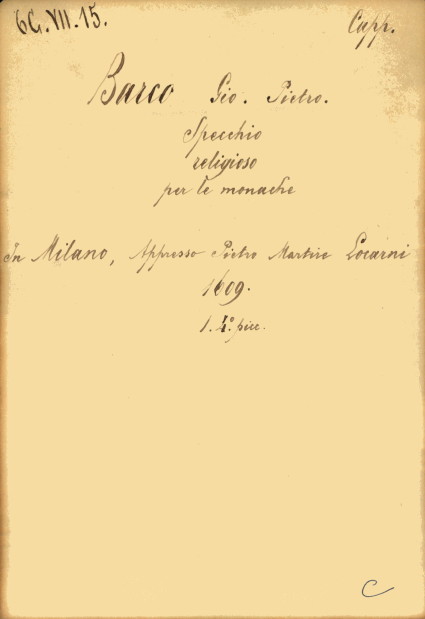 6C.VII.15.
Capp.
Barco Gio. Pietro.
Specchio
religioso
per le monache
In Milano, Appresso Pietro Martire Locarni
1609.
1. 4.° picc.
C